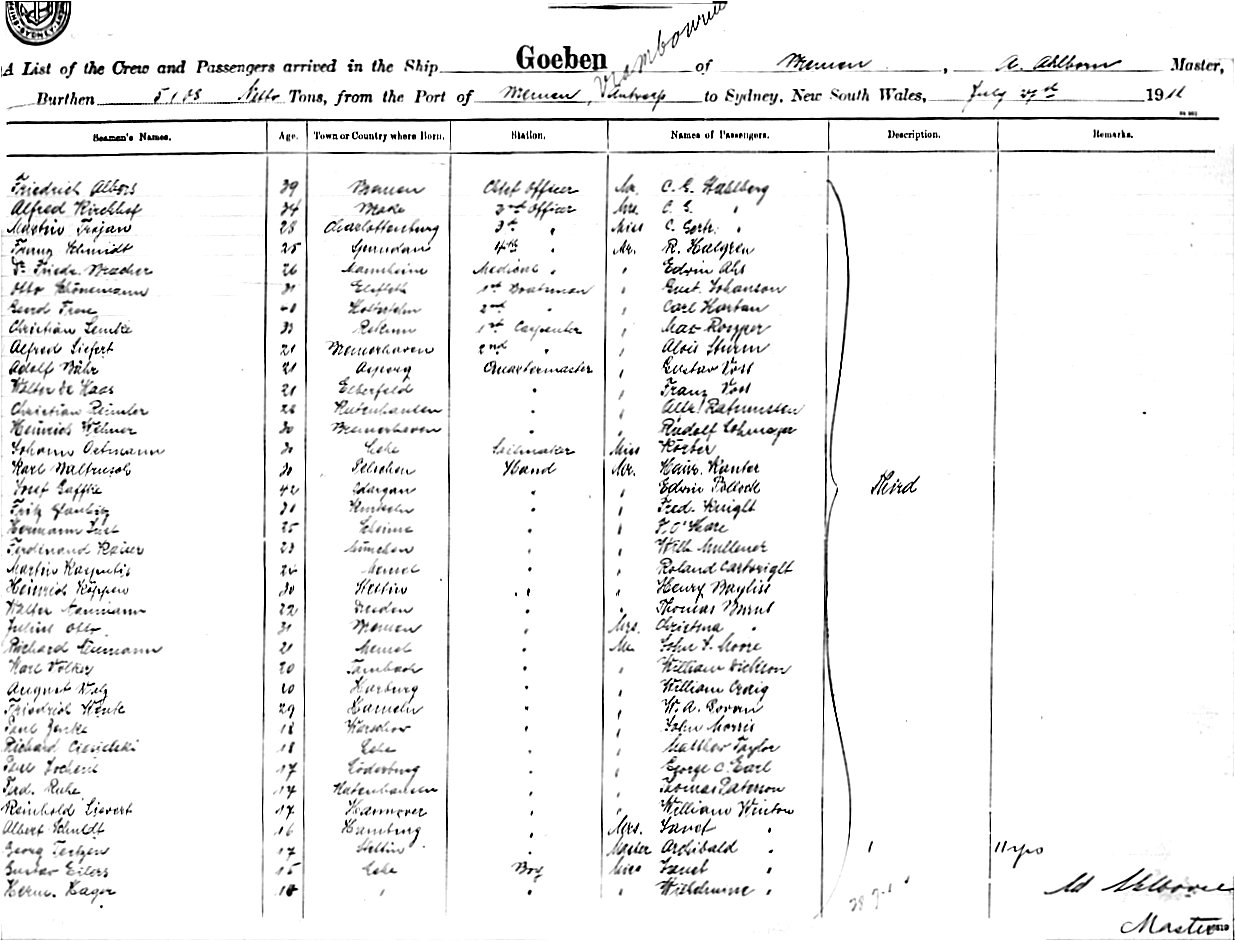 SYDNEY
Goeben
A List of the Crew and Passengers arrived in the Ship of Bremen, A. Ahlborn Master,
Burthen 5108 Netto Tons, from the Port of Bremen, Antwerp to Sydney, New South Wales, July 27th 191
Seamen's Names. Age. Town or Country where Born. Station. Names of Passengers. Description. Remarks.
Friedrich Albers 39 Bremen Chief Officer Mr. C. E. Hahlberg
Alfred Kirchhof 34 Brake 2nd Officer Mrs. C. E. "
Martin Trojan 28 Charlottenburg 3th " Miss C. Gertr. "
Franz Schmidt 25 Spandau 4th " Mr. R. Halgren
Dr. Friedr. Bracher 26 Mannheim Medical " " Edwin Ahs
Otto Schönemann 31 Elsfleth 1st Boatsman " Gust. Johanson
40 2nd " " Carl Hartan
Christian Lemke 33 1st Carpenter " Max Rosper
Alfred Siefert 21 Bremerhaven 2nd " " Alois Sturm
Adolf Bähr 21 Asperg Quartermaster " Gustav Voss
Walter de Haas 21 Elberfeld " " Franz Voss
Christian Reimler 26 Rutenhausen " " Rasmussen
Heinrich Wehner 30 Bremerhaven " " Rudolf Lohmeyer
Johann Oetmann 30 Lehe Sailmaker Miss Körber
Karl Baltrusch 30 Hand Mr. Heinr. Kanter
Josef Gaffke 42 " " Edwin Pollock
Fritz 31 " " Fred. Knight Third
Hermann Lust 25 " " T. O'Hare
Ferdinand Kaiser 23 München " " Wilh. Mullener
Martin Karputis 24 Memel " " Roland Cartwright
Heinrich Köppen 30 Stettin " " Henry Bayliss
Walter Naumann 22 Dresden " " Thomas Burns
Julius Otto 31 Bremen " Mrs. Christina "
Richard Neumann 21 Memel " Mr. John F. Moore
Karl Volker 20 Tambach " " William Dickson
August Walz 20 Harburg " " William Craig
Friedrich Wenk 29 Hameln " " W. A. Govan
Paul Jenke 18 Warschow " " John Morris
Richard Ciesielski 18 Lehe " " Matthew Taylor
Paul 17 " " George C. Earl
Ferd. Ruhe 17 Rutenhausen " " Thomas Paterson
Reinhold Sievert 17 Hannover " " William Winton
Albert Schuldt 16 Hamburg " Mrs. Janet "
Georg Tietzen 17 Stettin " Master Archibald " 1 11 yrs
Gustav Eilers 15 Lehe Boy Miss Janet "
Herm. Hager 18 " " " Wilhelmine "
Ad Ahlborn
Master